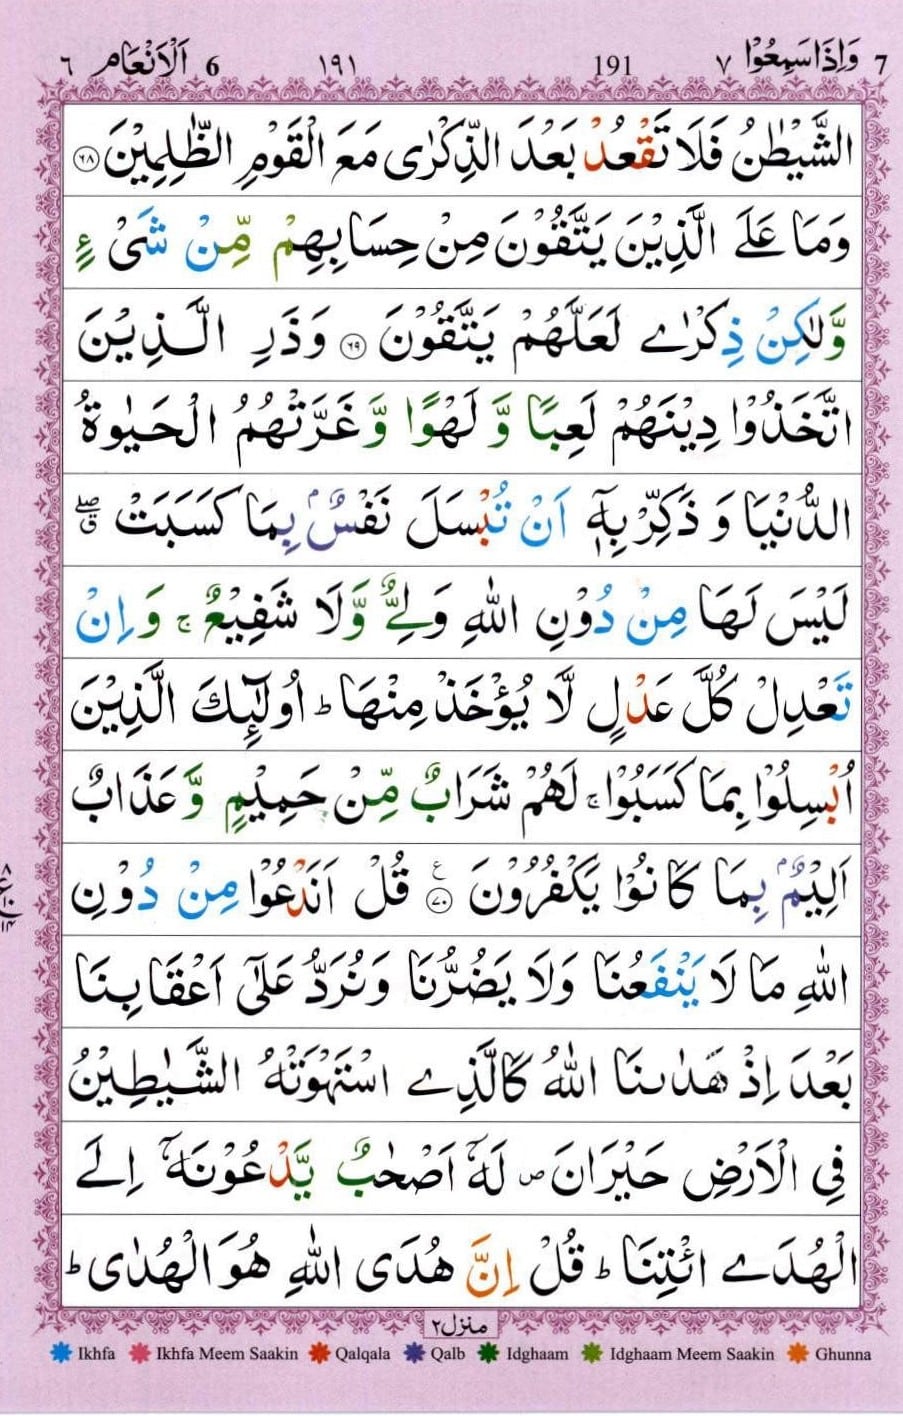 7 وَاِذَا سَمِعُوْا ٧ 191 ١٩١ 6 اَلْاَنْعَام ٦
الشَّيْطٰنُ فَلَا تَقْعُدْ بَعْدَ الذِّكْرٰى مَعَ الْقَوْمِ الظّٰلِمِيْنَ ٦٨
وَمَا عَلَى الَّذِيْنَ يَتَّقُوْنَ مِنْ حِسَابِهِمْ مِّنْ شَىْءٍ
وَّلٰكِنْ ذِكْرٰى لَعَلَّهُمْ يَتَّقُوْنَ ٦٩ وَذَرِ الَّذِيْنَ
اتَّخَذُوْا دِيْنَهُمْ لَعِبًا وَّ لَهْوًا وَّ غَرَّتْهُمُ الْحَيٰوةُ
الدُّنْيَا وَ ذَكِّرْ بِهٖٓ اَنْ تُبْسَلَ نَفْسٌۢ بِمَا كَسَبَتْ ۖق
لَيْسَ لَهَا مِنْ دُوْنِ اللّٰهِ وَلِىٌّ وَّلَا شَفِيْعٌ ۚ وَاِنْ
تَعْدِلْ كُلَّ عَدْلٍ لَّا يُؤْخَذْ مِنْهَا ؕ اُولٰٓئِكَ الَّذِيْنَ
اُبْسِلُوْا بِمَا كَسَبُوْا ۚ لَهُمْ شَرَابٌ مِّنْ حَمِيْمٍ وَّعَذَابٌ
اَلِيْمٌۢ بِمَا كَانُوْا يَكْفُرُوْنَ ٧٠ ع قُلْ اَنَدْعُوْا مِنْ دُوْنِ
اللّٰهِ مَا لَا يَنْفَعُنَا وَلَا يَضُرُّنَا وَنُرَدُّ عَلٰٓى اَعْقَابِنَا
بَعْدَ اِذْ هَدٰىنَا اللّٰهُ كَالَّذِى اسْتَهْوَتْهُ الشَّيٰطِيْنُ
فِى الْاَرْضِ حَيْرَانَ ص لَهٗٓ اَصْحٰبٌ يَّدْعُوْنَهٗٓ اِلَى
الْهُدَى ائْتِنَا ؕ قُلْ اِنَّ هُدَى اللّٰهِ هُوَ الْهُدٰى ؕ
منزل٢
Ikhfa Ikhfa Meem Saakin Qalqala Qalb Idghaam Idghaam Meem Saakin Ghunna